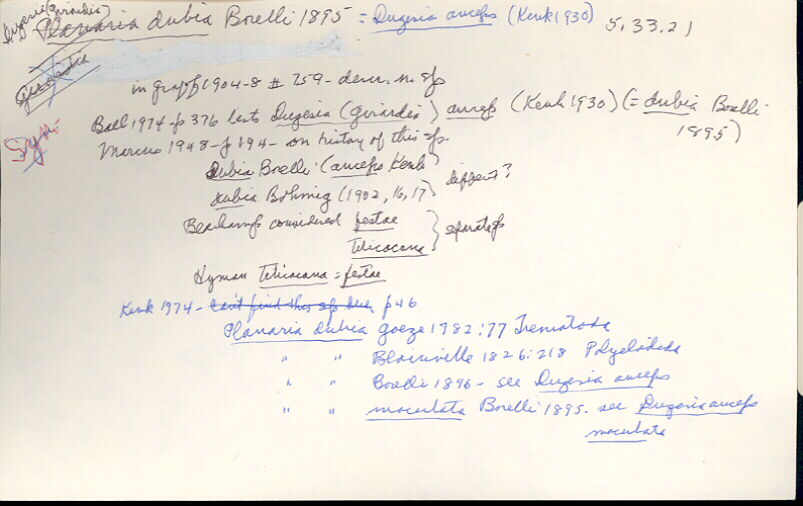 Dugesia (Girardia)
Planaria dubia Borelli 1895 = Dugesia anceps (Kenk 1930) 5.33.21
Girardia
Syn
in Graff 1904-8 # 259 - descr. n. sp
Ball 1974 - p 376 lists Dugesia (Girardia) anceps (Kenk 1930) (= dubia Borelli 1895)
Marcus 1948 - p 194 - on history of this sp.
dubia Borelli (anceps Kenk)
dubia Böhmig (1902, 16, 17) } different?
Beauchamp considered festae
Titicacana } separate sps
Hyman Titicacana = festae
Kenk 1974 - can't find this sp here p 46
Planaria dubia Goeze 1782:77 Trematoda
" " Blainville 1826:218 Polycladida
" " Borelli 1896 - see Dugesia anceps
" " maculata Borelli 1895. see Dugesia anceps
maculata